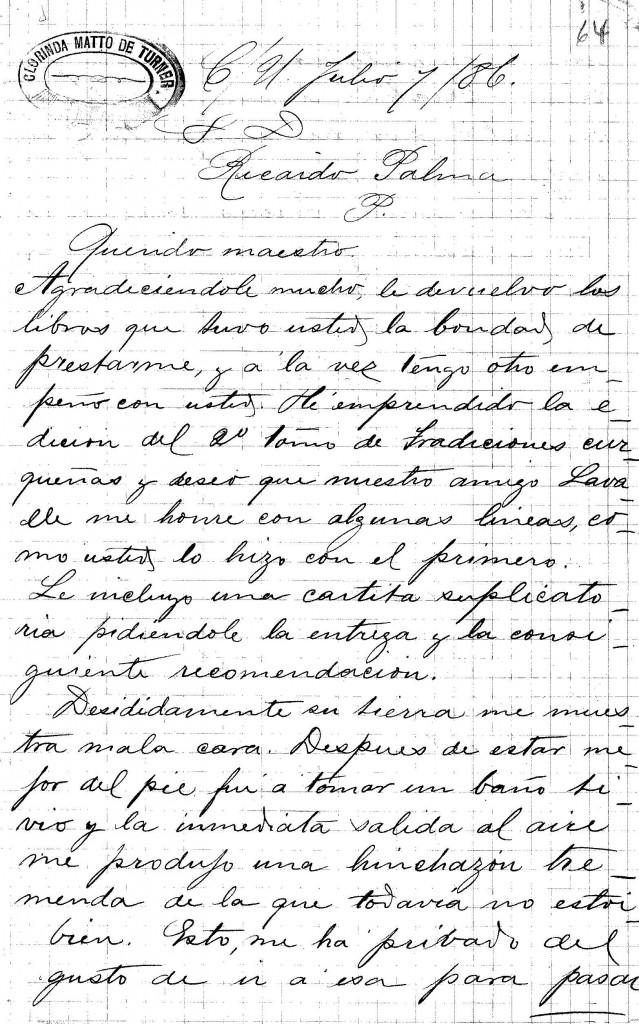 64
CLORINDA MATTO DE TURNER.
C/U Julio 7/86.
S D
Ricardo Palma
P.
Querido maestro
Agradeciendole mucho, le devuelvo los
libros que tuvo usted, la bondad, de
prestarme, y a la vez tengo otro em_
peño con usted. Hé emprendido la e_
dicion del 2º tomo de Tradiciones cuz_
queñas y deseo que nuestro amigo Lava_
lle me honre con algunas lineas, co_
mo usted, lo hizo con el primero.
Le incluyo una cartita suplicato_
ria pidiéndole la entrega y la consi_
guiente recomendación.
Desididamente su tierra me mues_
tra mala cara. Despues de estar me_
jor del pie fuí a tomar un baño ti_
vio y la inmediata salida al aire
me produjo una hinchazón tre_
menda de la que todavía no estoi
bien. Esto, me ha pribado del
gusto de ir a esa para pasar